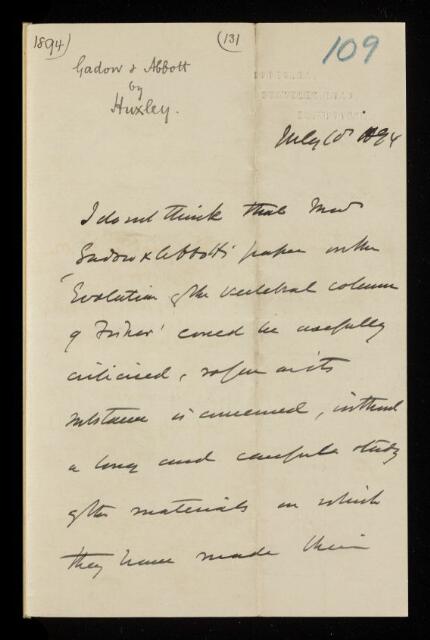 1894)
(131
109
Gadow & Abbott
by
Huxley.
July 10 1894
I do not think that
Gadow & Abbott's paper on the
'Evolution of the vertebral column
of Fishes' could be usefully
criticised, so far as its
substance is concerned, without
a long and careful study
of the materials on which
they have made their